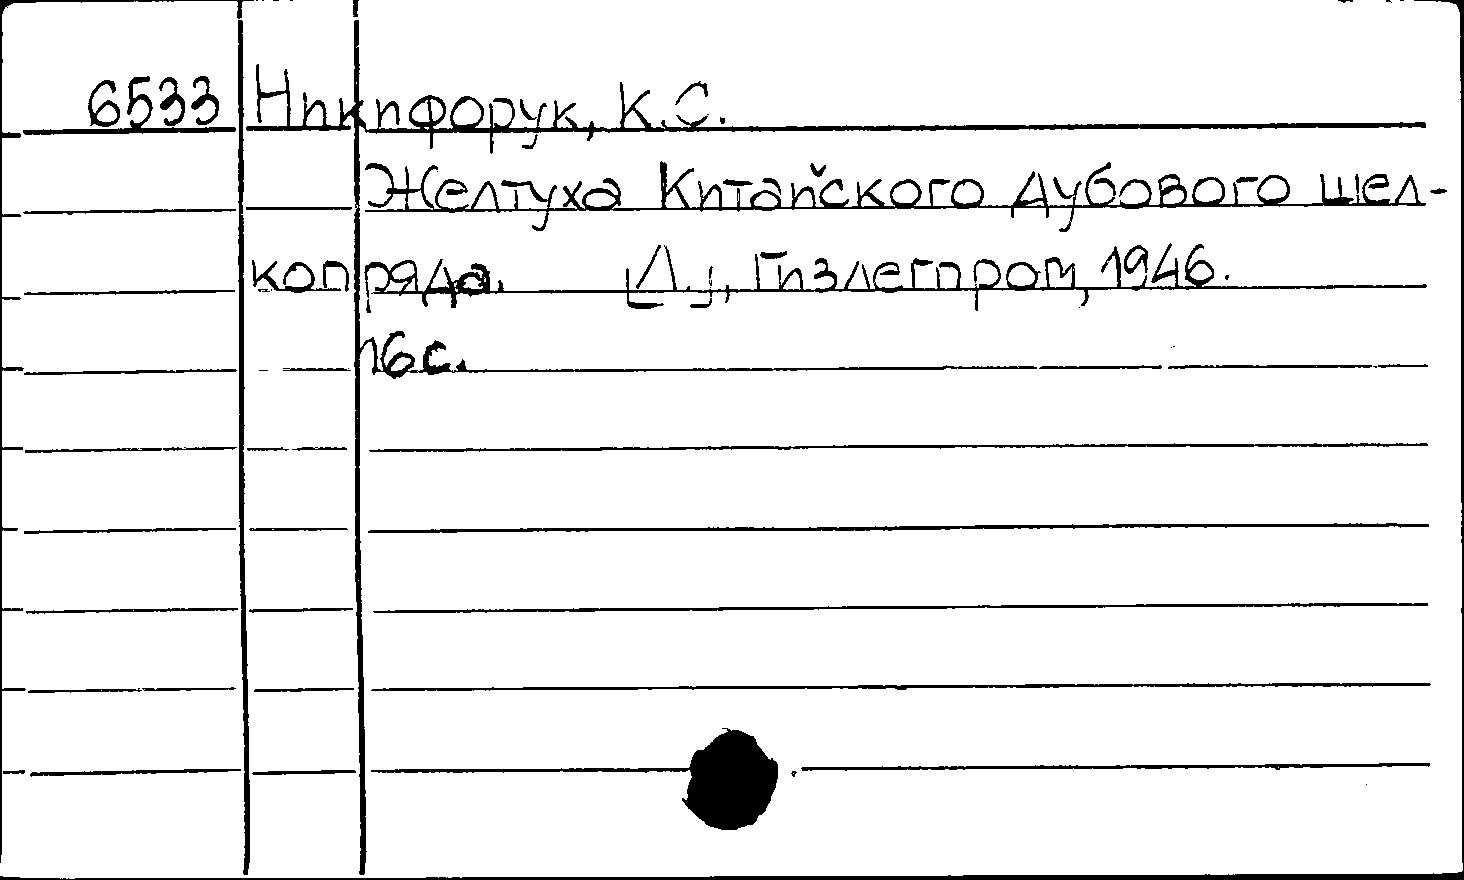 6533 Никифорук, К.С.
Желтуха Китайского дубового шел-
копряда. [Л.], Гизлегпром, 1946.
16 с.